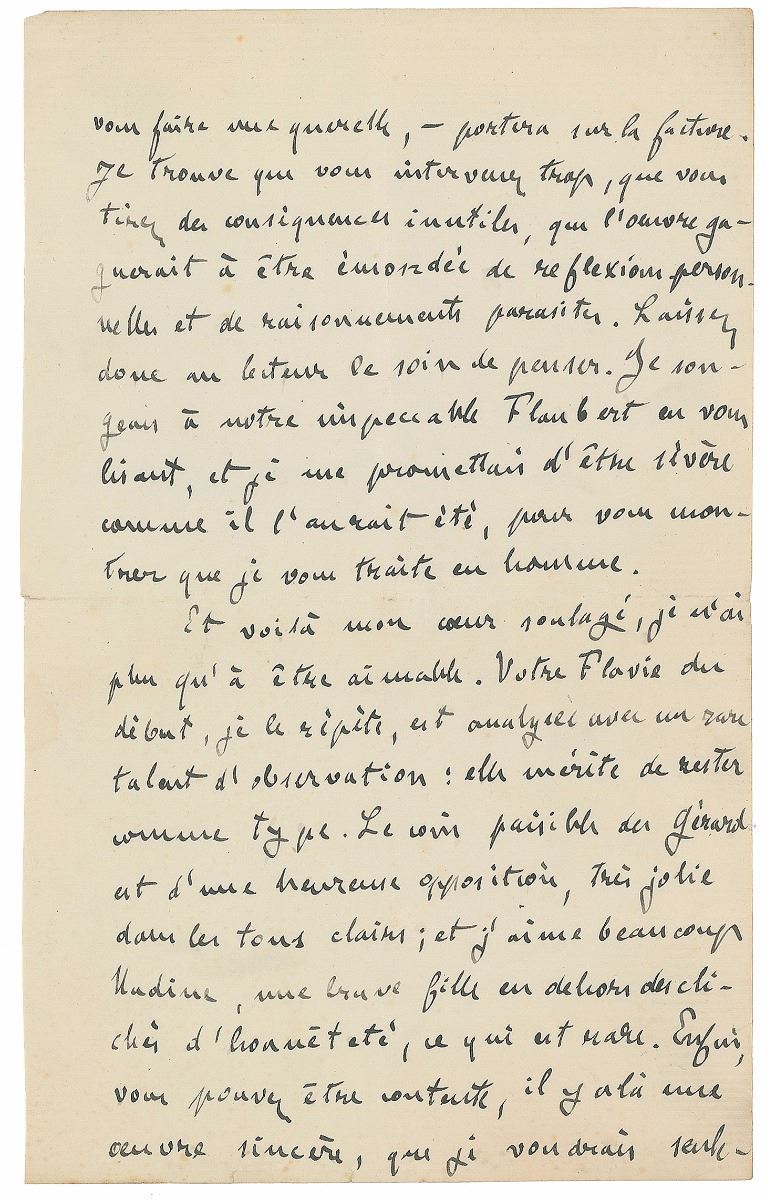 vous faire une querelle, — portera sur la facture.
Je trouve que vous intervenez trop, que vous
tirez des conséquences inutiles, que l'œuvre ga-
gnerait à être émondée de reflexions person-
nelles et de raisonnements parasites. Laissez
donc au lecteur le soin de penser. Je son-
geais à notre impeccable Flaubert en vous
lisant, et je me promettais d'être sévère
comme il l'aurait été, pour vous mon-
trer que je vous traite en homme.
Et voilà mon cœur soulagé, je n'ai
plus qu'à être aimable. Votre Flavie du
début, je le répète, est analysée avec un rare
talent d'observation : elle mérite de rester
comme type. Le coin paisible des Gérard
est d'une heureuse opposition, très jolie
dans les tons clairs ; et j'aime beaucoup
Nadine, une brave fille en dehors des cli-
chés d'honnêteté, ce qui est rare. Enfin,
vous pouvez être contente, il y a là une
œuvre sincère, que je voudrais seule-